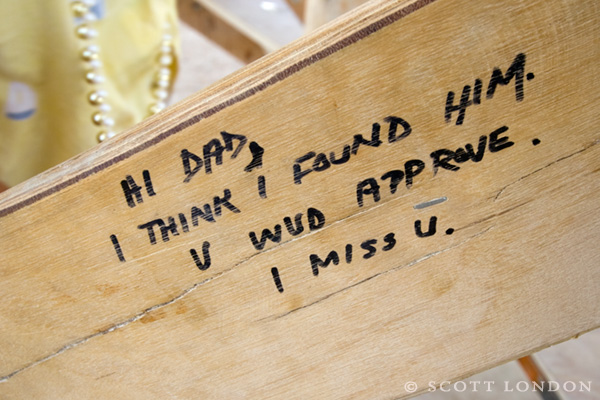 HI DAD,
I THINK I FOUND HIM.
U WUD APPROVE.
I MISS U.
© SCOTT LONDON